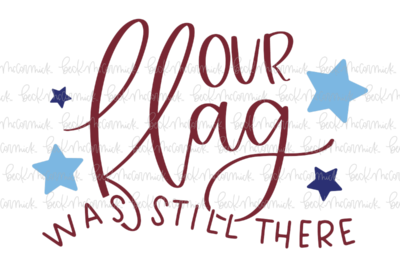 OUR
flag
WAS STILL THERE